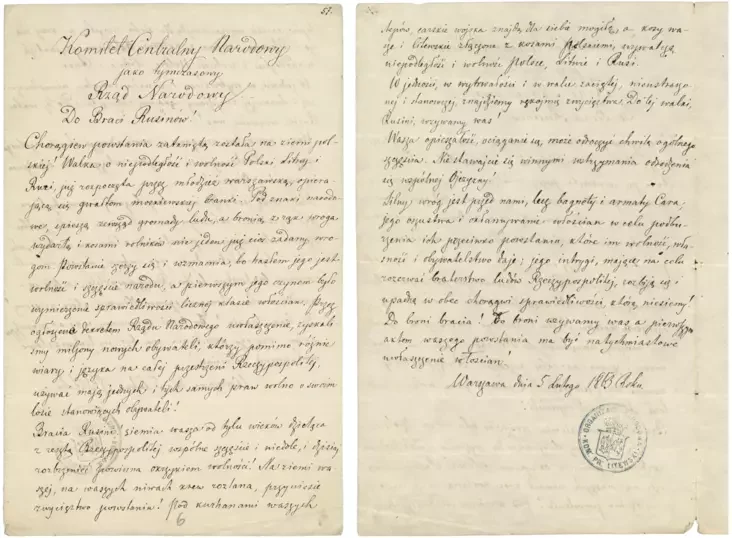 51.
Komitet Centralny Narodowy
jako tymczasowy
Rząd Narodowy.
Do Braci Rusinów!
Chorągiew powstania zatknięta została na ziemi pol-
skiej! Walka o niepodległość i wolność Polski Litwy i
Rusi, już rozpoczęta przez młodzież warszawską, opiera-
jącą się gwałtom moskiewskiej branki. Pod znaki narodo-
we, spieszą zewsząd gromady ludu, a bronią z rąk wroga
wydartą i kosami rolników nie jeden już cios zadany wro-
gom. Powstanie szerzy się i wzmacnia, bo hasłem jego jest
wolność i szczęście narodu, a pierwszym jego czynem było
wymierzenie sprawiedliwości licznej klasie włościan. Przez
ogłoszone dekretem Rządu Narodowego uwłaszczenie, zyskali-
śmy miljony nowych obywateli, którzy pomimo różnic
wiary i języka na całej przestrzeni Rzeczypospolitej,
używać mają jednych i tych samych praw wolno o swoim
losie stanowiących obywateli!
Bracia Rusini ziemia wasza od tylu wieków dzieląca
z resztą Rzeczypospolitej wspólne szczęście i niedole, i dzisiaj
rozbrzmieć powinna okrzykiem wolności! Na ziemi wa-
szej, na waszych niwach krew rozlana, przyniesie
zwycięztwo powstaniu! Pod kurhanami waszych
6
stepów, carskie wojska znajdą dla siebie mogiłę, a kosy wa-
sze i Litewskie złączone z kosami Polskiemi, wywalczą
niepodległość i wolność Polsce, Litwie i Rusi.
W jedności, w wytrwałości i w walce zaciętej, nieustraszo-
nej i stanowczej, znajdziemy rękojmię zwycięztwa. Do tej walki,
Rusini, wzywamy was!
Wasza opieszałość, ociąganie się, może odroczyć chwilę ogólnego
szczęścia. Nie stawajcie się winnymi wstrzymania odrodzenia
się wspólnej Ojczyzny!
Silny wróg jest przed nami, lecz bagnety i armaty Cara,
jego oszustwa i okłamywanie włościan w celu podbu-
rzenia ich przeciwko powstaniu, które im wolność, włas-
ność i obywatelstwo daje; jego intrygi, mające na celu
rozerwać braterstwo ludów Rzeczypospolitej, rozbiją się i
upadną w obec chorągwi sprawiedliwości, którą niesiemy!
Do broni bracia! Do broni wzywamy was a pierwszym
aktem waszego powstania ma być natychmiastowe
uwłaszczenie włościan!
Warszawa dnia 5 Lutego 1863 Roku.